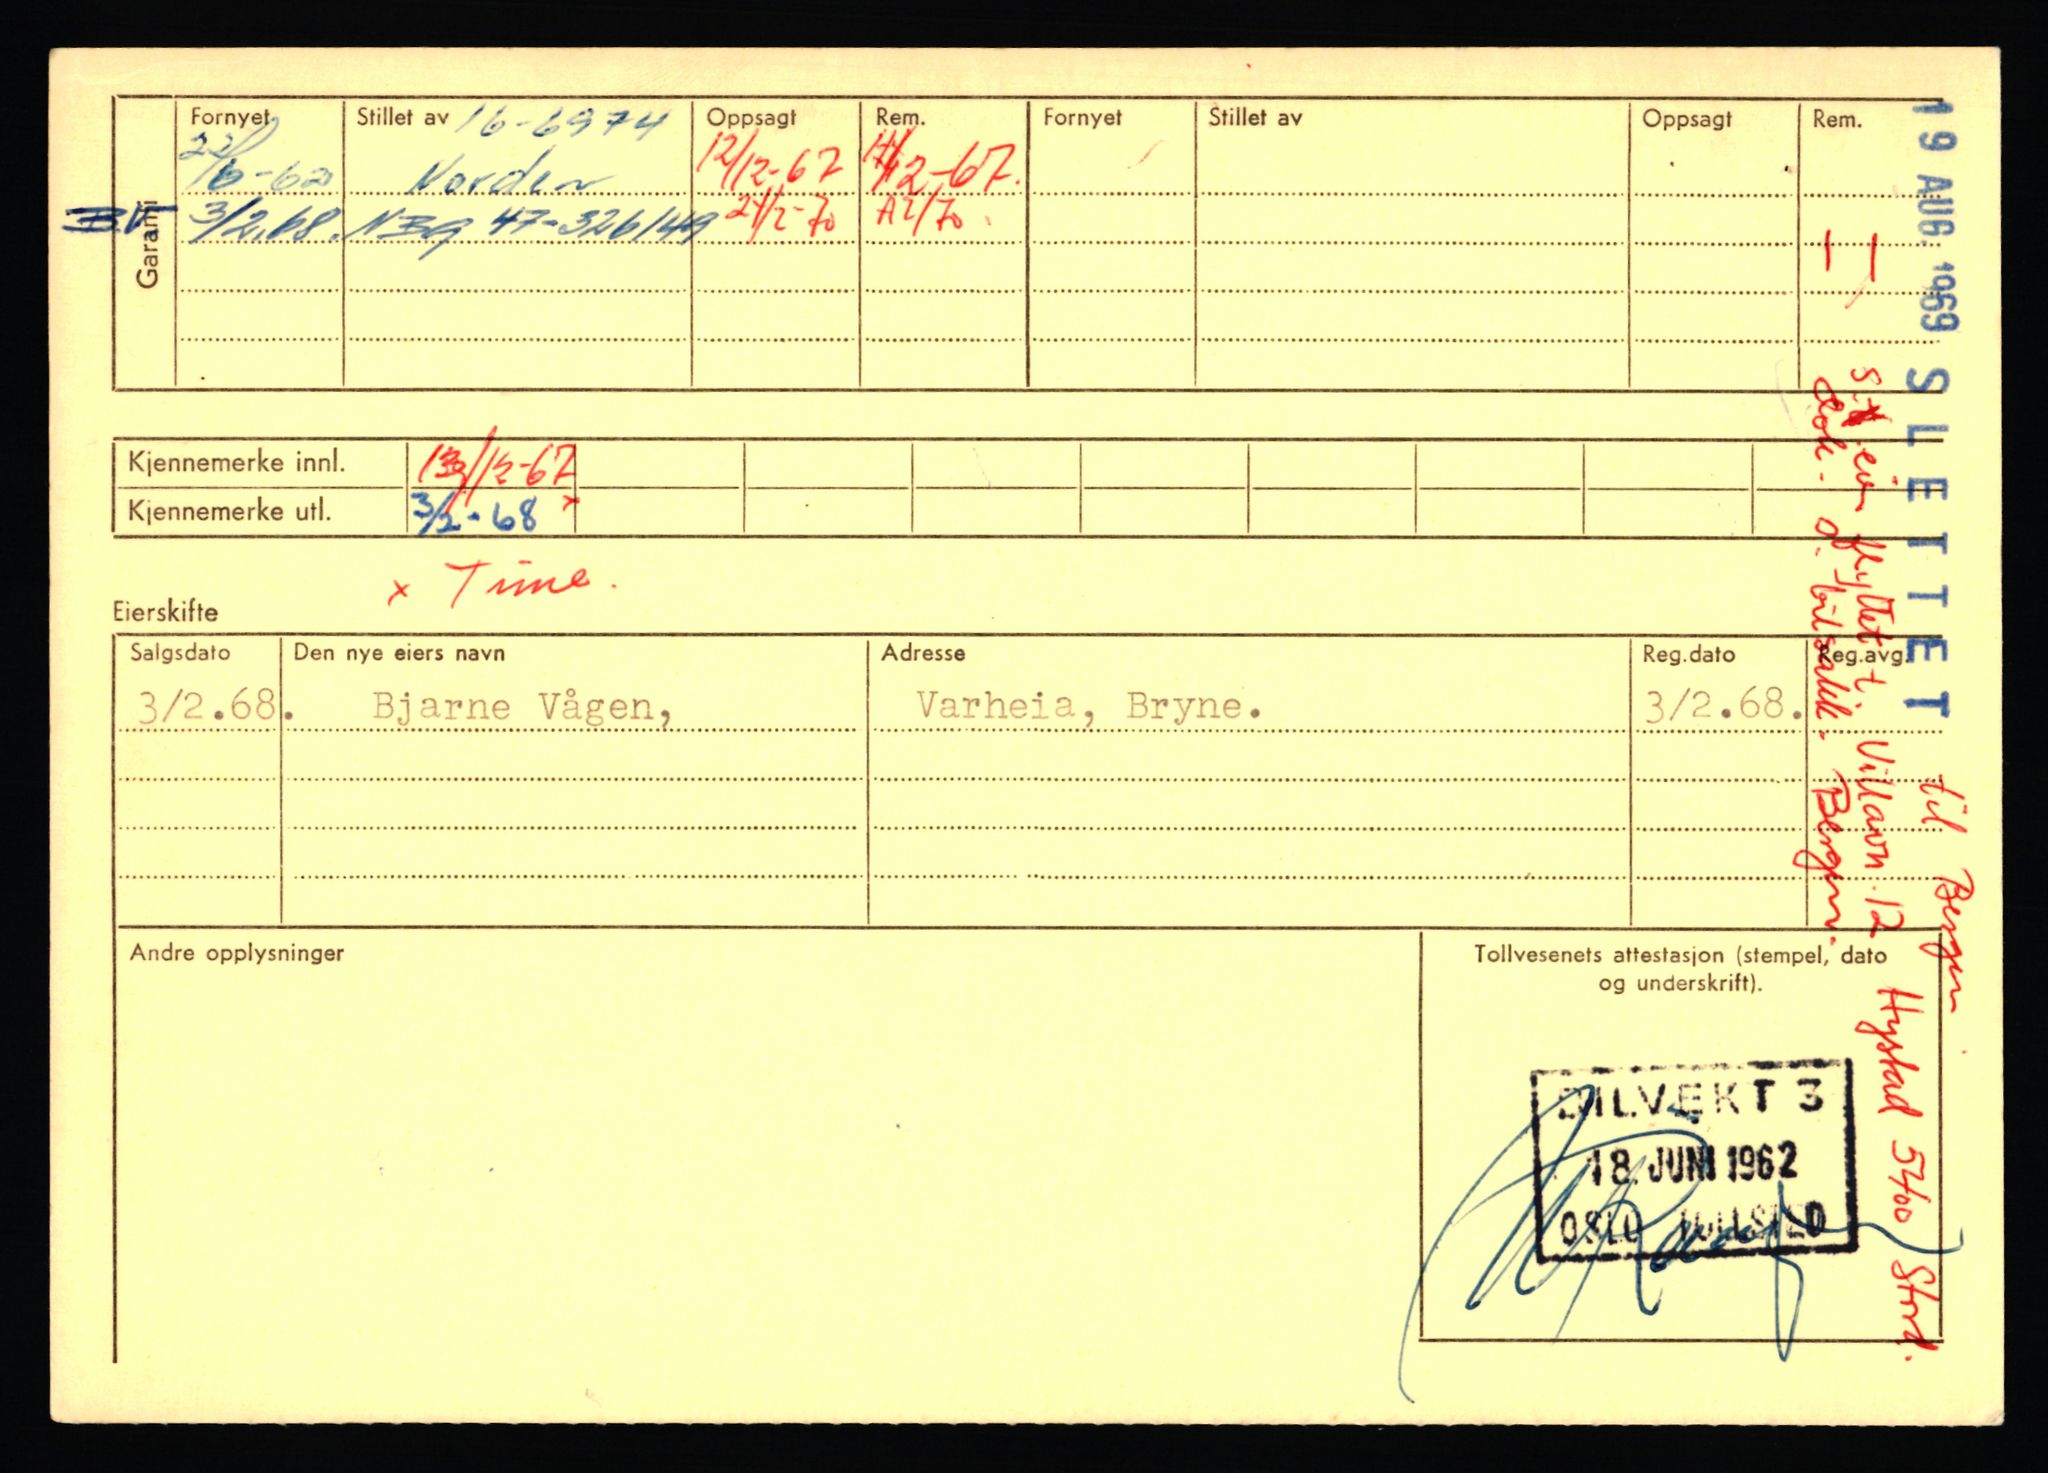 Garanti
Fornyet Stillet av Oppsagt Rem. Fornyet Stillet av Oppsagt Rem.
16-6974
22/6-62 Norden 12/12-67 12-67.
B.V 3/2.68. NBG 47-326149 24/2-70 A2/70.
Kjennemerke innl. 13/12-67
Kjennemerke utl. 3/2-68 x
x Time.
Eierskifte
Salgsdato Den nye eiers navn Adresse Reg.dato Reg.avg.
3/2.68. Bjarne Vågen, Varheia, Bryne. 3/2.68.
Andre opplysninger
Tollvesenets attestasjon (stempel, dato
og underskrift).
BILVEKT 3
18. JUNI 1962
OSLO TOLLSTED
19 AUG. 1969 SLETTET til Bergen
eier flyttet t. Villavn. 12 Hystad 5400 Stord.
bilsakk. Bergen.